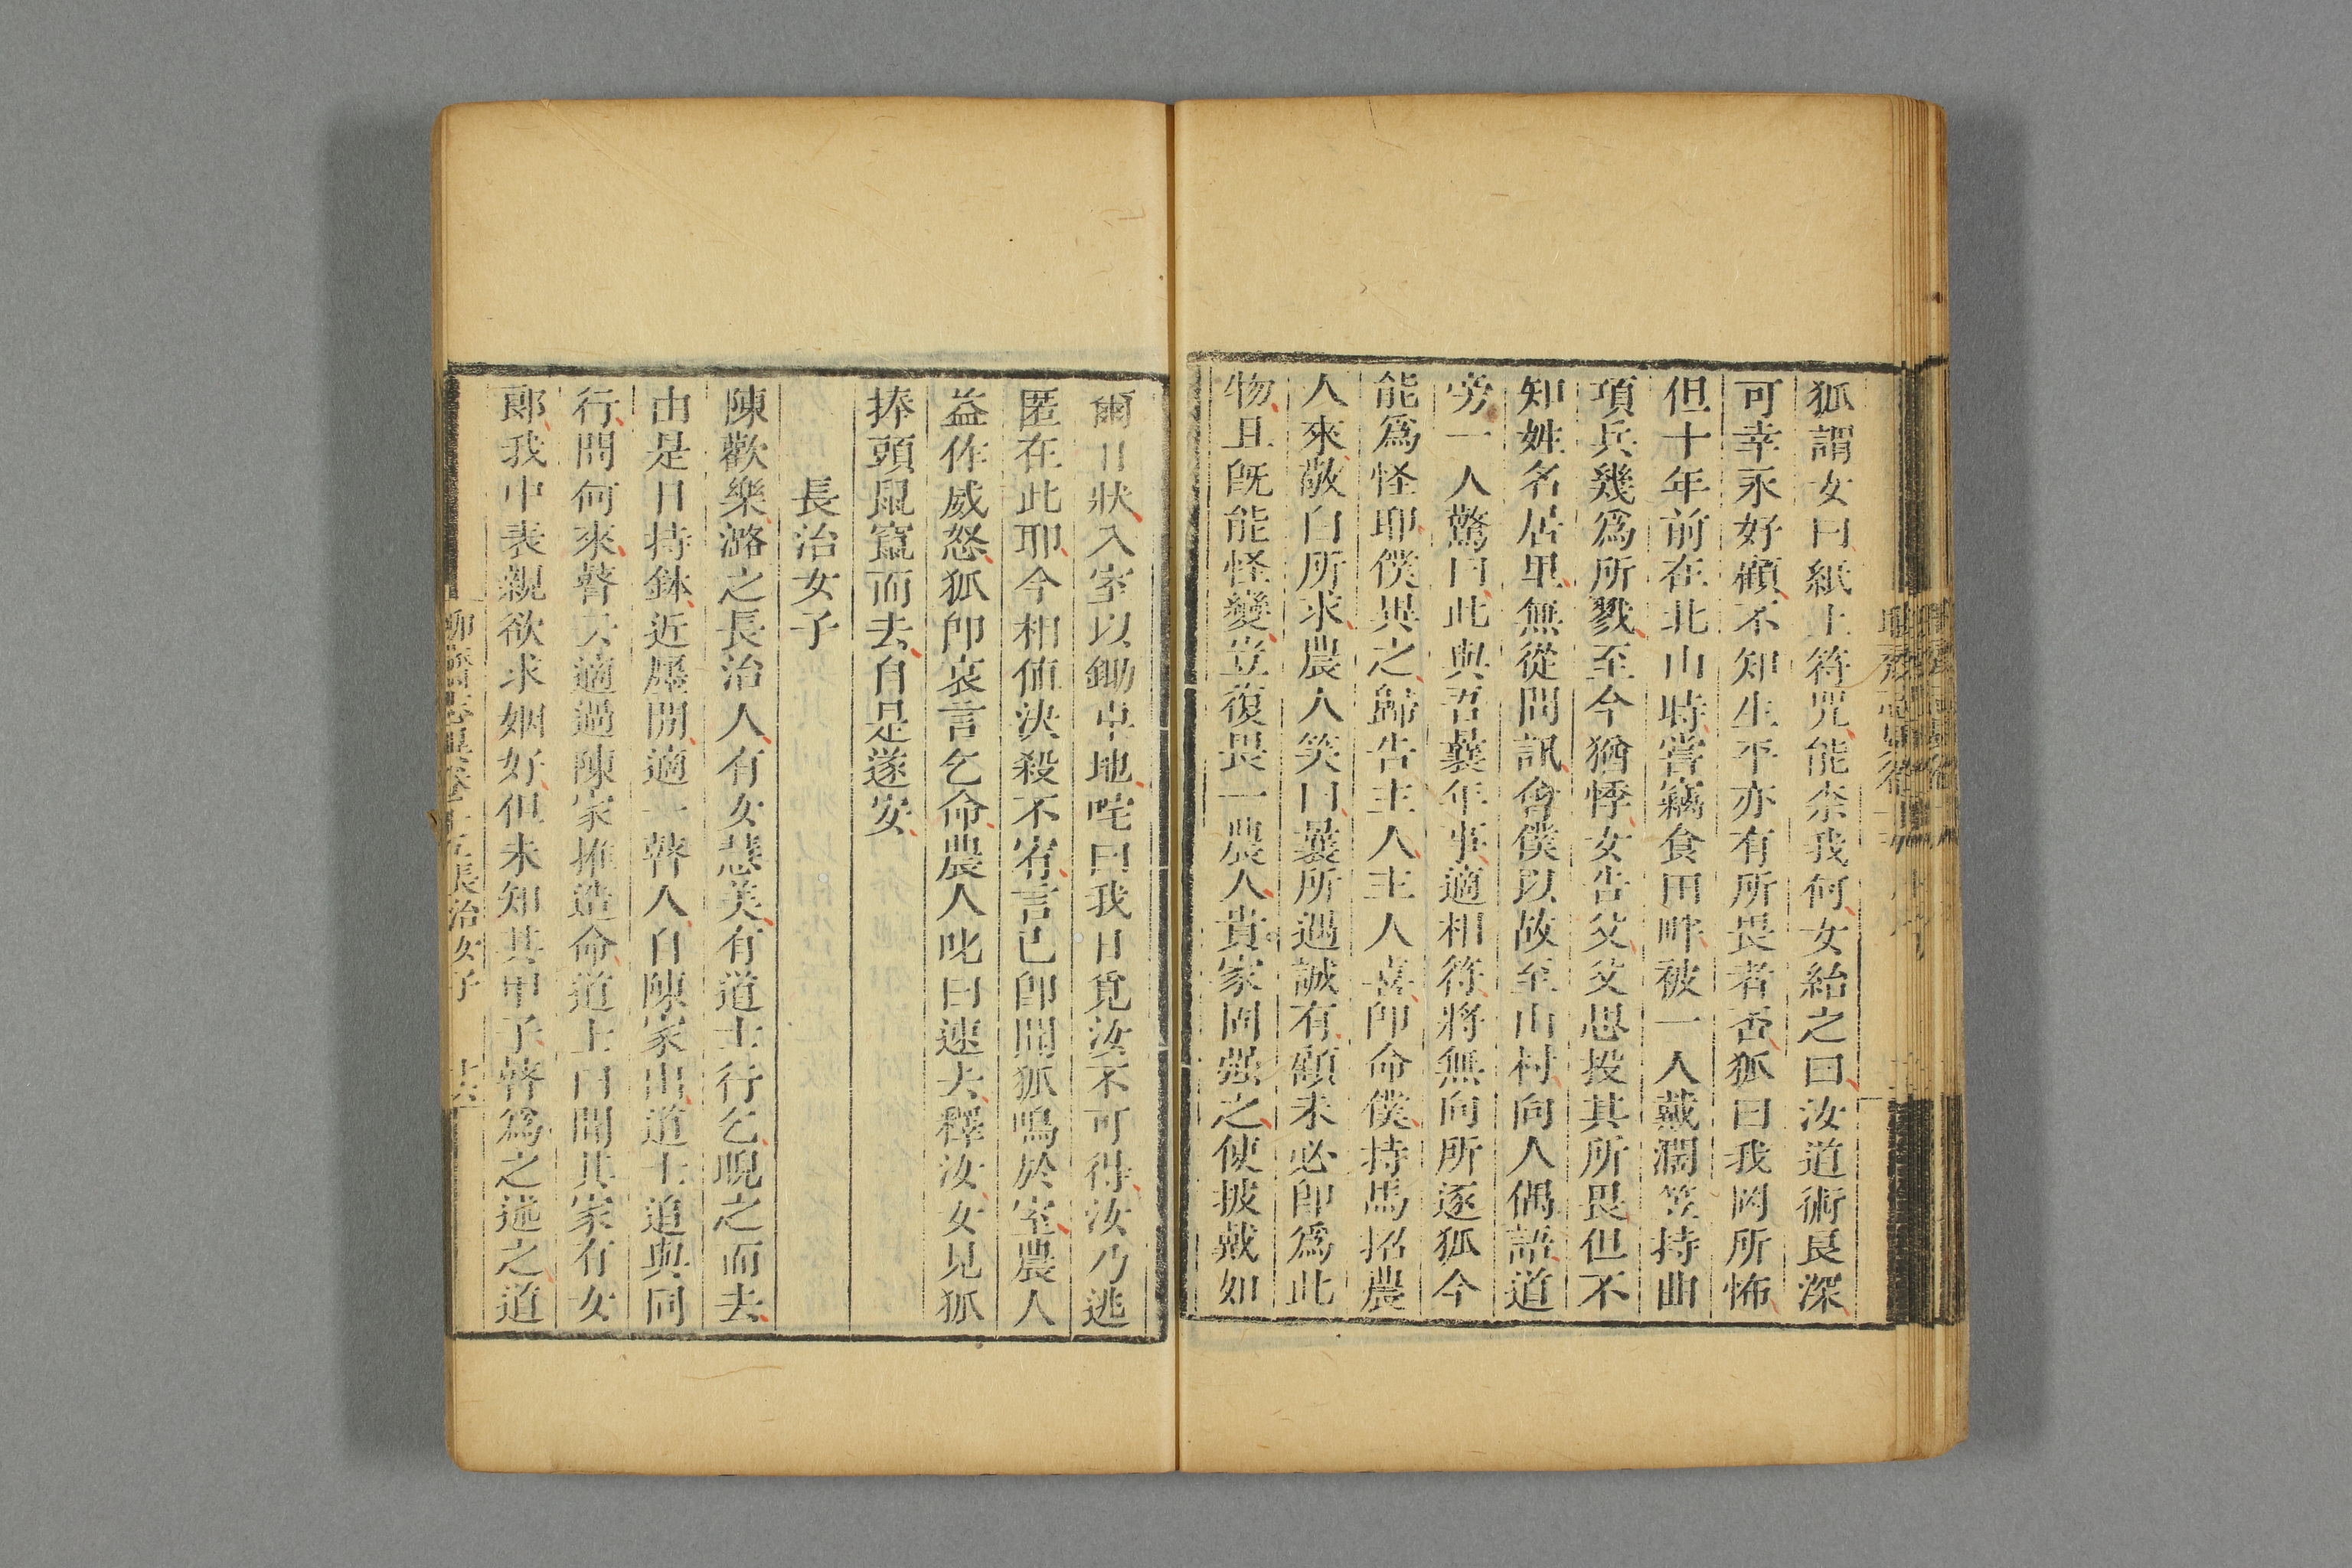 狐謂女曰紙上符咒能柰我何女紿之曰汝道術良深
可幸永好顧不知生平亦有所畏者否狐曰我罔所怖
但十年前在北山時嘗竊食田畔被一人戴濶笠持曲
項兵幾爲所戮至今猶悸女告父父思投其所畏但不
知姓名居里無從問訊會僕以故至山村向人偶語道
旁一人驚曰此與吾曩年事適相符將無向所逐狐今
能爲怪耶僕異之歸告主人主人喜卽命僕持馬招農
人來敬白所求農人笑曰曩所遇誠有顧未必卽爲此
物且旣能怪變豈復畏一農人貴家固强之使披戴如
爾日狀入室以鋤卓地咤曰我日覓汝不可得汝乃逃
匿在此耶今相値決殺不宥言已卽聞狐鳴於室農人
益作威怒狐卽哀言乞命農人叱曰速去釋汝女見狐
捧頭鼠竄而去自是遂安
長治女子
陳歡樂潞之長治人有女慧美有道士行乞睨之而去
由是日持鉢近廛間適一瞽人自陳家出道士追與同
行問何來瞽云適過陳家推造命道士曰聞其家有女
郞我中表親欲求姻好但未知其甲子瞽爲之述之道
聊齋志異卷十五長治女子 十六